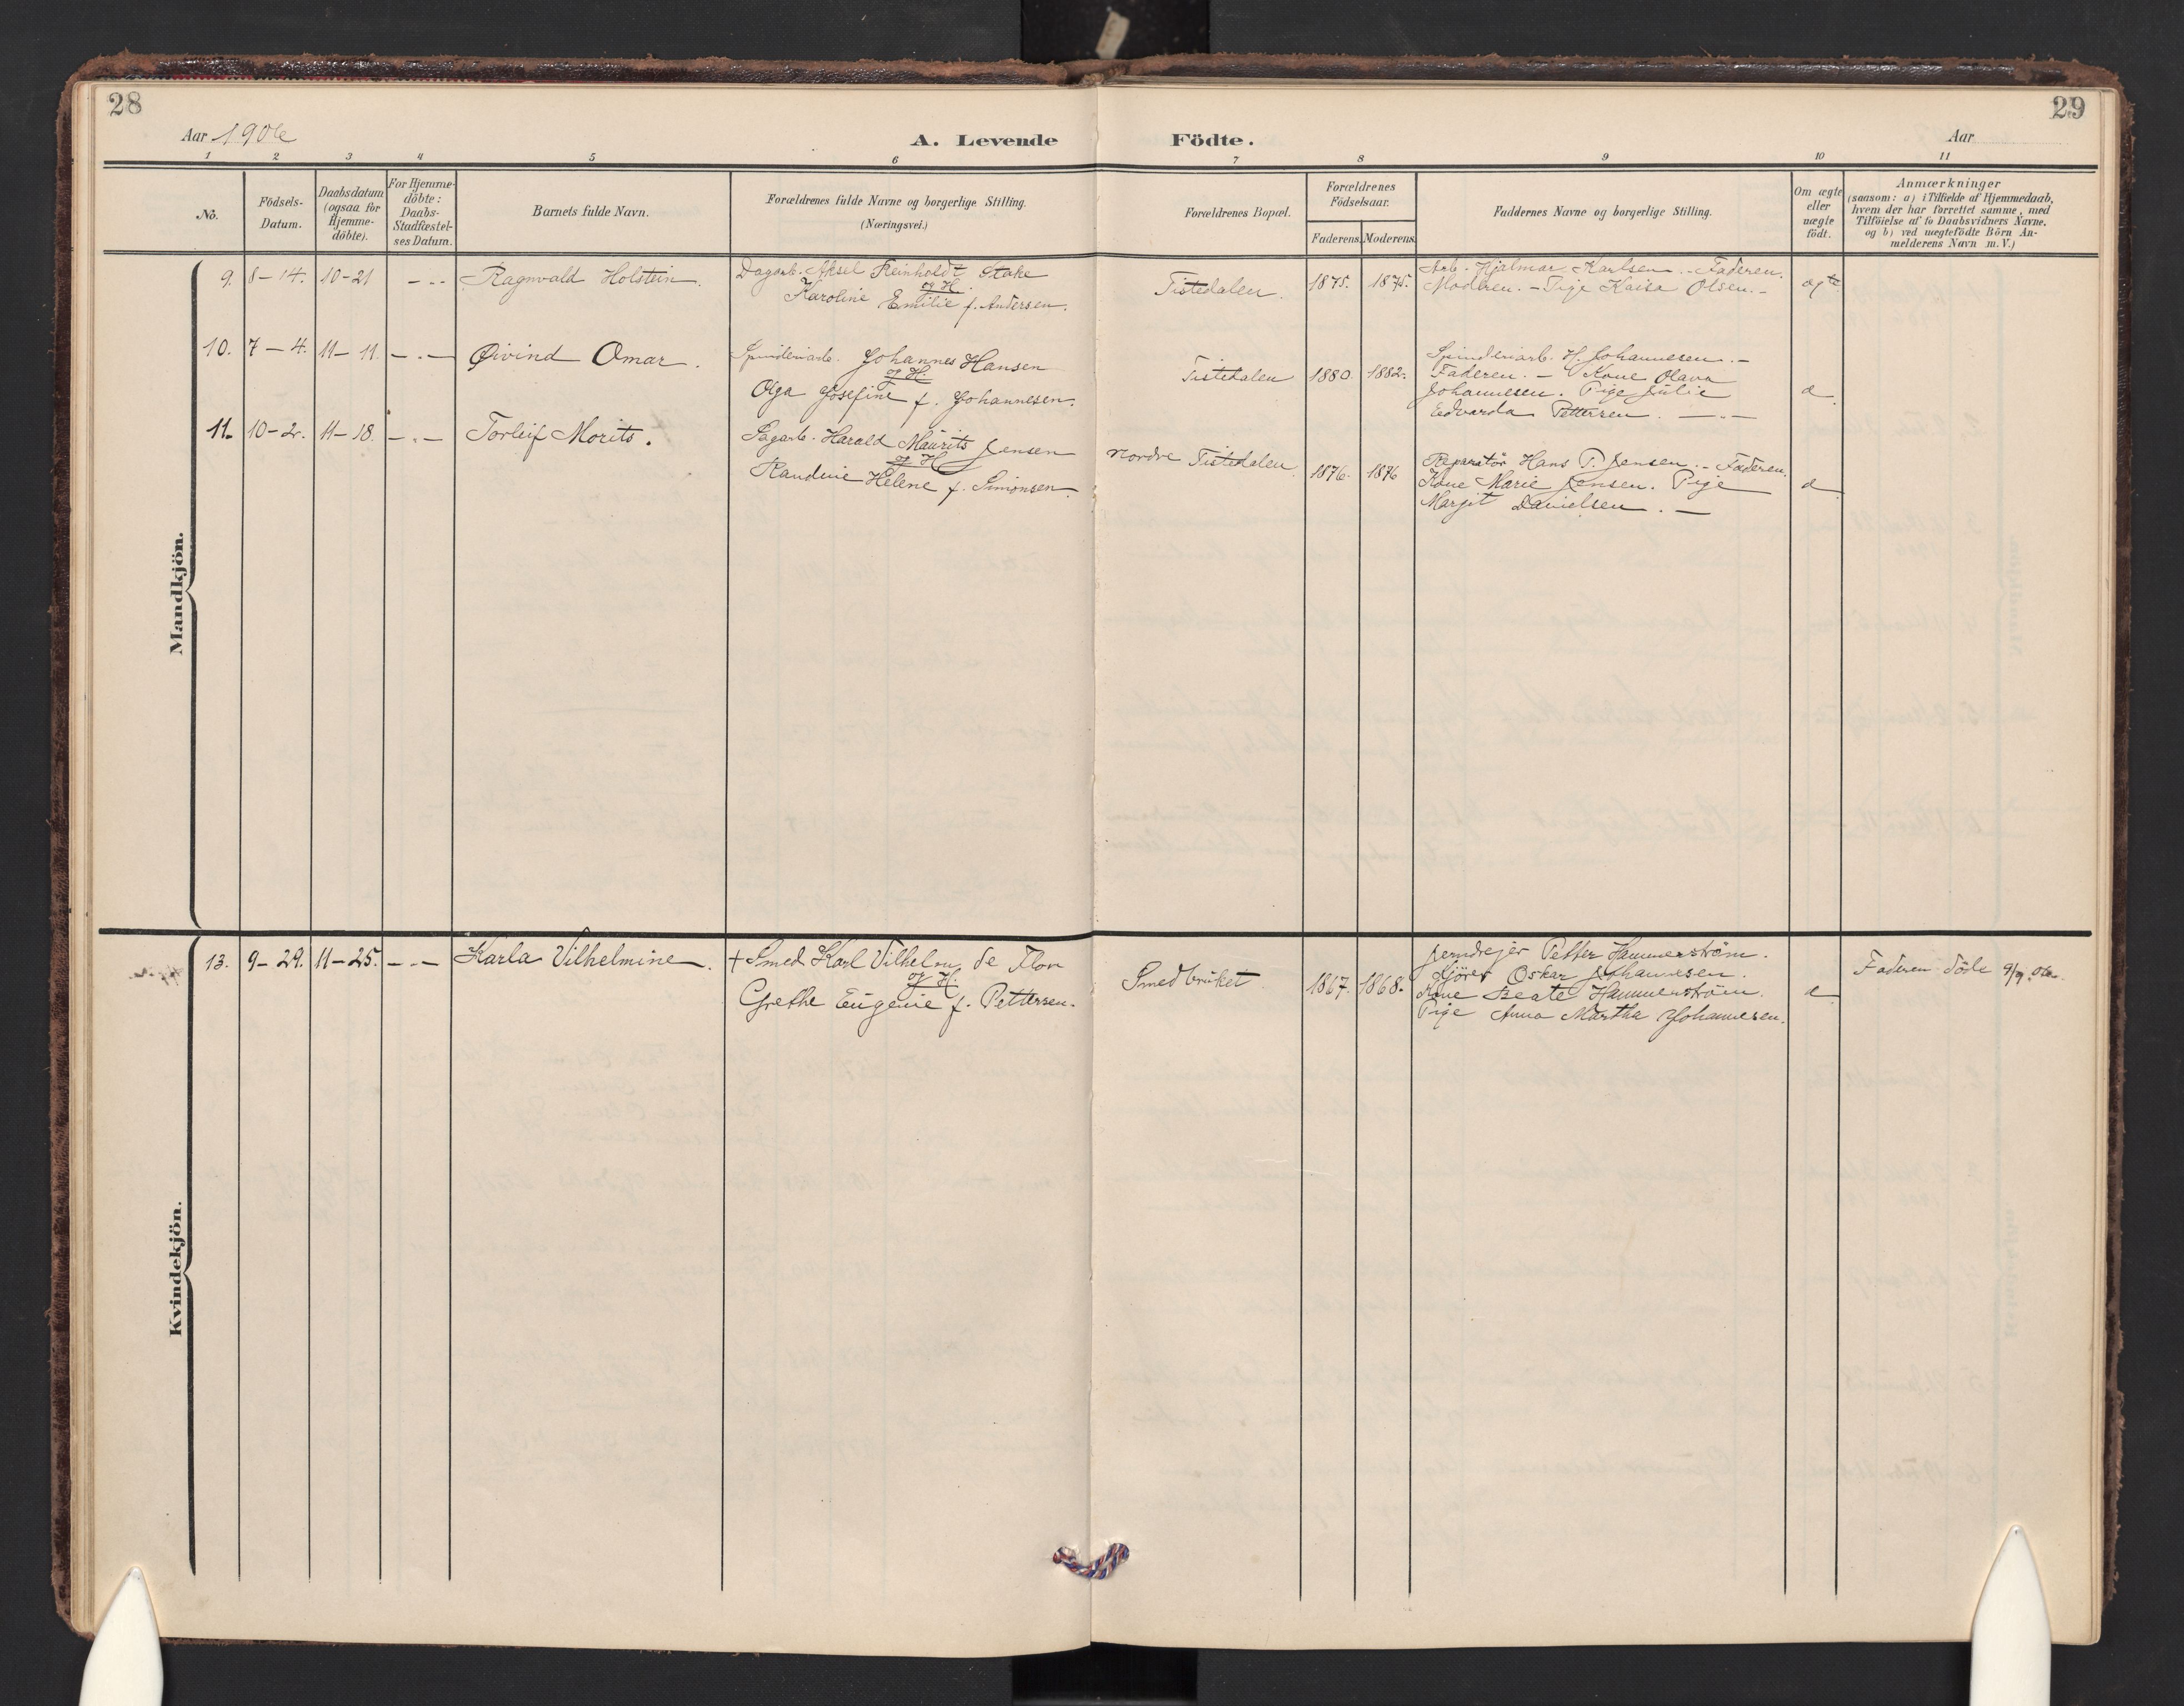 28
29
Aar 1906
A. Levende Födte.
Aar
1 2 3 4 5 6 7 8 9 10 11
No.
Födsels-
Datum.
Daabsdatum
(ogsaa for
Hjemme-
döbte).
For Hjemme-
döbte:
Daabs-
Stadfæstel-
ses Datum.
Barnets fulde Navn.
Forældrenes fulde Navne og borgerlige Stilling.
(Næringsvei.)
Forældrenes Bopæl.
Forældrenes
Födselsaar.
Faderens. Moderens.
Faddernes Navne og borgerlige Stilling.
Om ægte
eller
uægte
födt.
Anmærkninger
(saasom: a) i Tilfælde af Hjemmedaab,
hvem der har forrettet samme, med
Tilföielse af to Daabsvidners Navne,
og b) ved uægtefödte Börn An-
melderens Navn m. V.)
Mandkjön.
9. 8-14. 10-21 - „ - Ragnvald Holstein.
Dagarb. Aksel Reinholdt Stake
og H.
Karoline Emilie f. Andersen.
Tistedalen. 1875. 1875.
Arb. Hjalmar Karlsen. - Faderen.
Moderen. - Pige Kaisa Olsen. -
ægte
10. 7-4. 11-11. - „ - Øivind Omar.
Spinderiarb. Johannes Hansen
og H.
Olga Josefine f. Johannesen.
Tistedalen 1880. 1882.
Spinderiarb. H. Johannesen. -
Faderen. - Kone Olava
Johannesen. Pige Julie
Edvarda Pettersen. - „ -
d
11. 10-2. 11-18. - „ - Torleif Morits.
Sagarb. Harald Maurits Jensen
og H.
Randine Helene f. Simonsen.
Nordre Tistedalen. 1876. 1876
Reparatör Hans P. Jensen. - Faderen.
Kone Marie Jensen. Pige
Margit Danielsen. -
d
Kvindekjön.
13. 9-29. 11-25. - „ - Karla Vilhelmine.
+ Smed Karl Vilhelm de Flon
og H.
Grethe Eugenie f. Pettersen.
Smedbruket. 1867. 1868.
Jerndrejer Petter Hammerström.
Kjörer Oskar Johannesen.
Kone Beate Hammerström.
Pige Anna Martha Johannesen.
d
Faderen döde 9/9. 06.